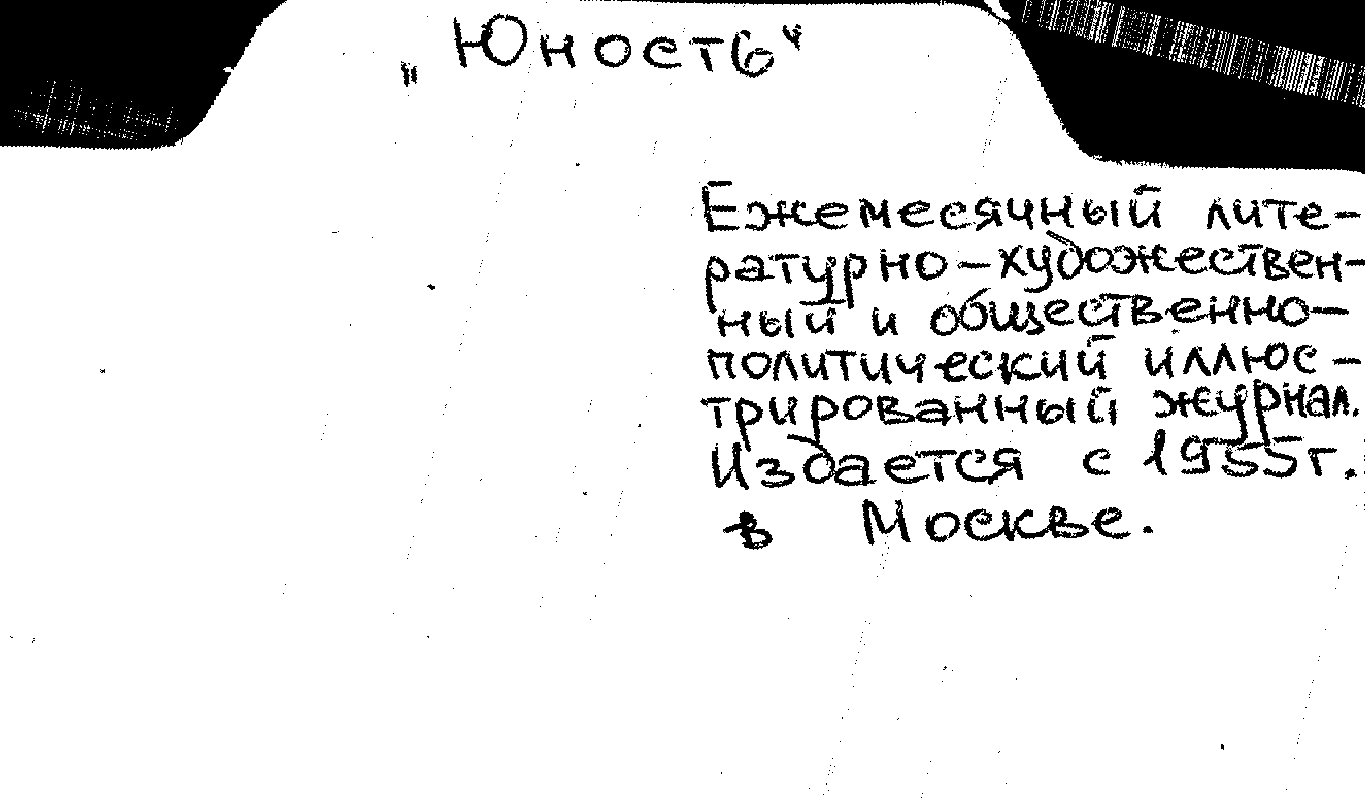 „Юность“
Ежемесячный лите-
ратурно-художествен-
ный и общественно-
политический иллюс-
трированный журнал.
Издается с 1955г.
в Москве.